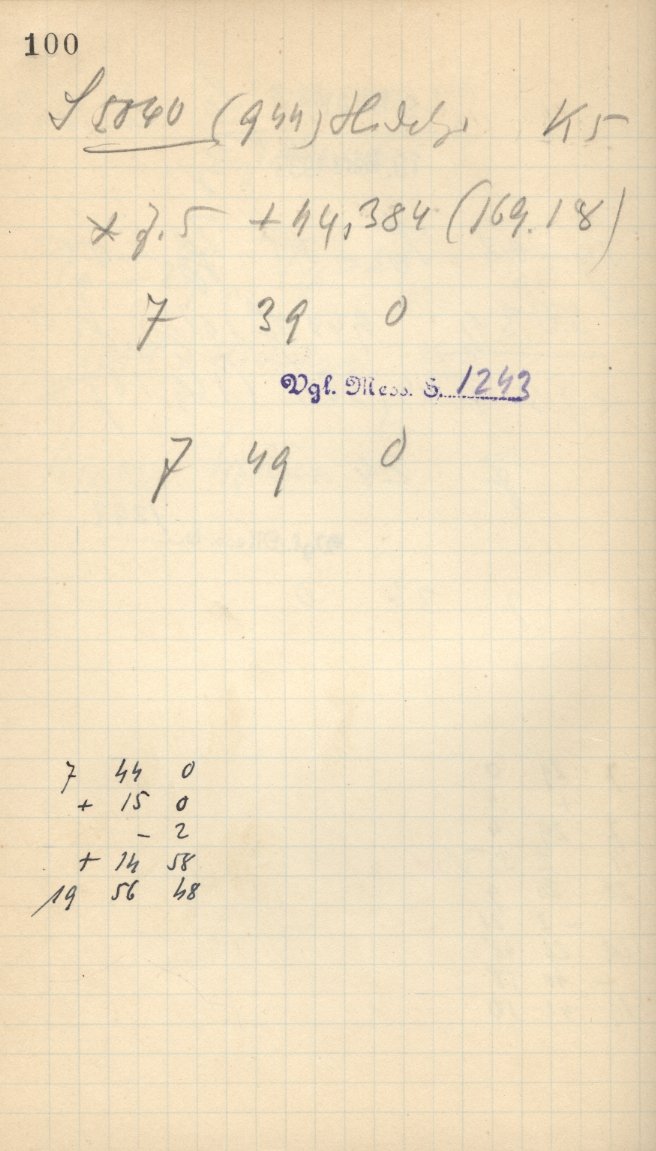 100
S 5040 (944) Hidelg. K5
+44,384 (169.18)
7 39 0
Vgl. Mess. S. 1243
7 49 0
7 44 0
+ 15 0
- 2
+ 14 58
19 56 48